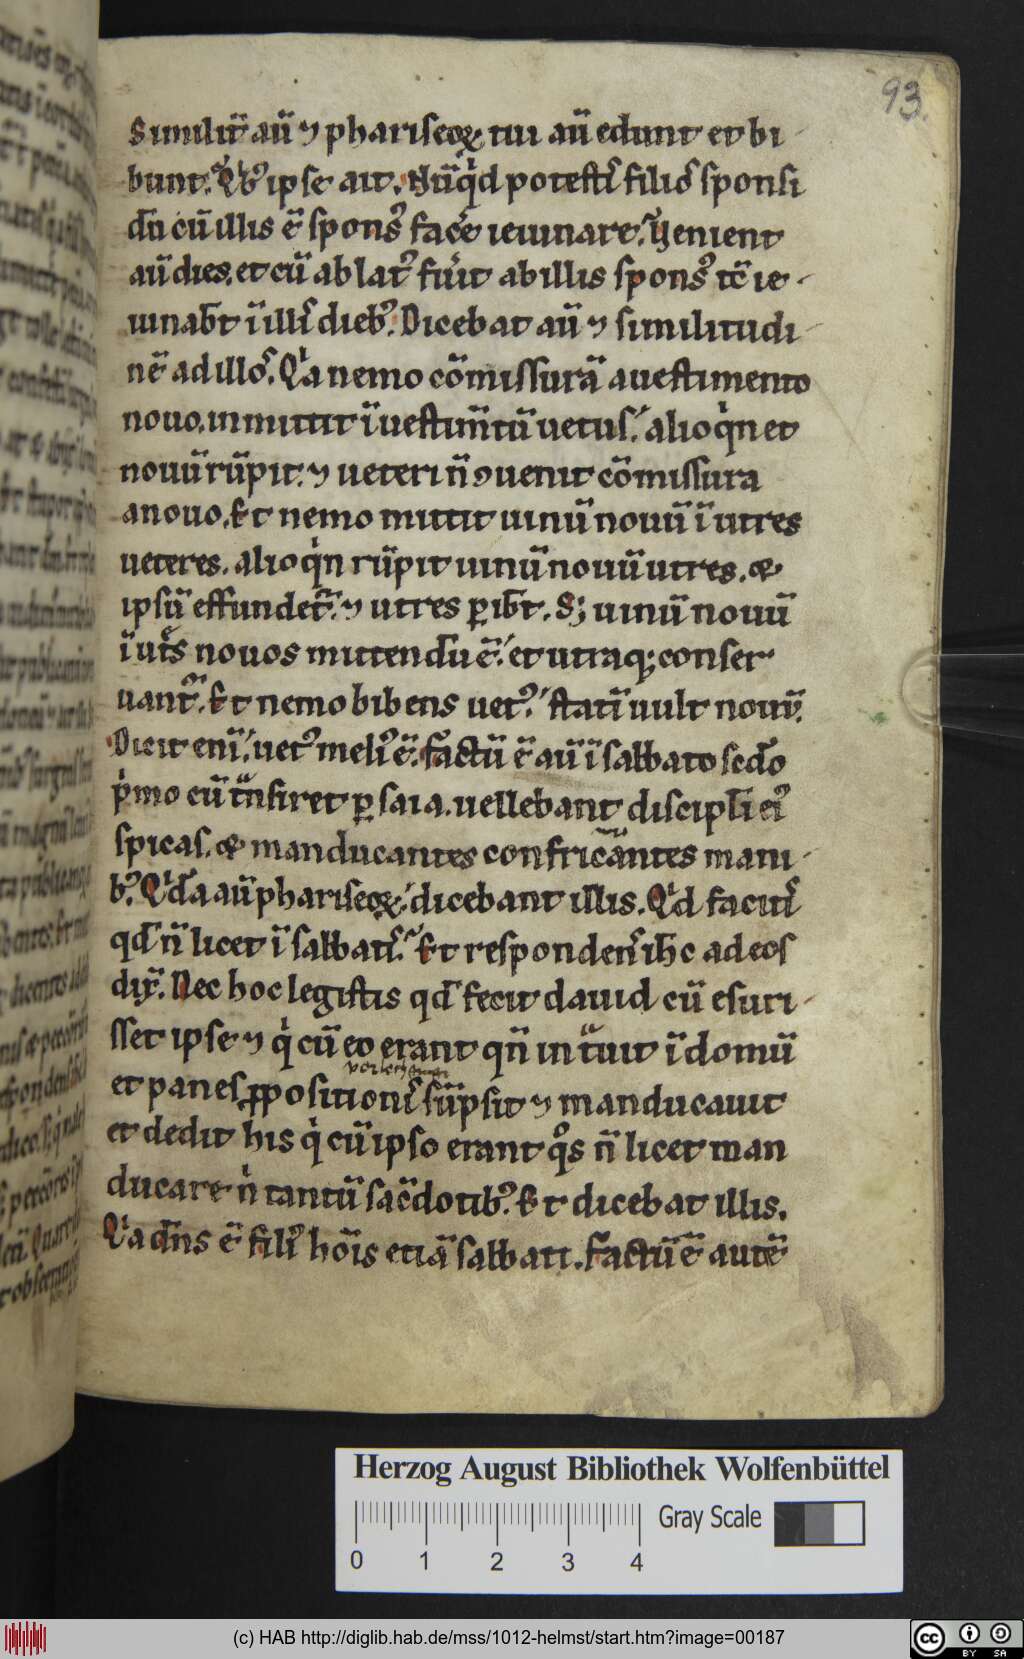 93.
Similit̄ aū ⁊ phariseoꝝ tui aū edunt et bi
bunt. Qͥbꝰ ipse ait. Nūqͥd potestis filios sponsi
dū cū illis ē sponsꝰ facͤe ieiunare. Venient
aū dies. et cū ablatꝰ fuͥit ab illis sponsꝰ tc̄ ie
iunab̄t ī illis diebꝰ. Dicebat aū ⁊ similitudi
nē ad illos. Qͥa nemo cōmissurā a uestimento
nouo. inmittit ī uestim̄tū uetus. alioqͥn et
nouū rūpit. ⁊ ueteri n̄ ꝯuenit cōmissura
a nouo. Et nemo mittit uinū nouū ī utres
ueteres. alioqͥn rūpit uinū nouū utres. &
ipsū effundet᷑. ⁊ utres ꝑib̄t. Sꝫ uinū nouū
ī utͤs nouos mittendū ē. et utraqꝫ conser
uant᷑. Et nemo bibens uetꝰ. statī uult nouū.
Dicit enī. uetꝰ meliꝰ ē. Factū ē aū ī sabbato secd̄o
pͥmo cū tͣnsiret ꝑ sata. uellebant discipl̄i eiꝰ
spicas. & manducantes confricantes mani
bꝰ. Qͥdā aū phariseoꝝ. dicebant illis. Qͥd facitis
qd̄ n̄ licet ī sabbatis. Et respondens ih̄c ad eos
dix̄. Nec hoc legistis qd̄ fecit dauid cū esuri
sset ipse ⁊ qͥ cū eo erant qn̄ intͣuit ī domū
et panes ꝓpositionis sūpsit ⁊ manducauit
et dedit his qͥ cū ipso erant qͦs n̄ licet man
ducare nͥ tantū sac̄dotibꝰ. Et dicebat illis.
Qͥa dn̄s ē filiꝰ hoīs etiā sabbati. Factū ē autē
Herzog August Bibliothek Wolfenbüttel
Gray Scale
0 1 2 3 4
(c) HAB http://diglib.hab.de/mss/1012-helmst/start.htm?image=00187
cc BY SA